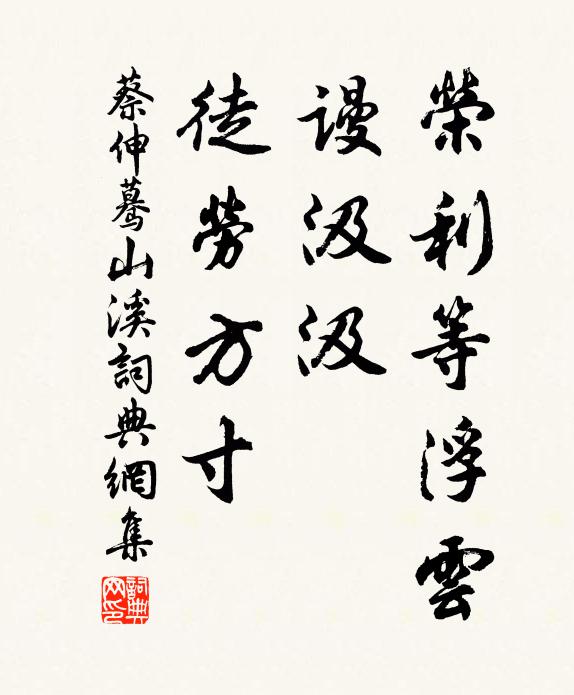 榮利等浮雲
謾汲汲
徒勞方寸
蔡伸驀山溪詞典網集
詞典網印